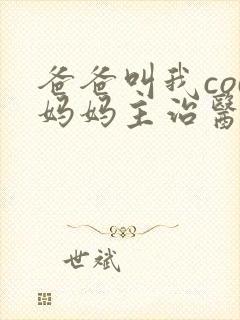 爸爸叫我co
妈妈主治醫
世斌